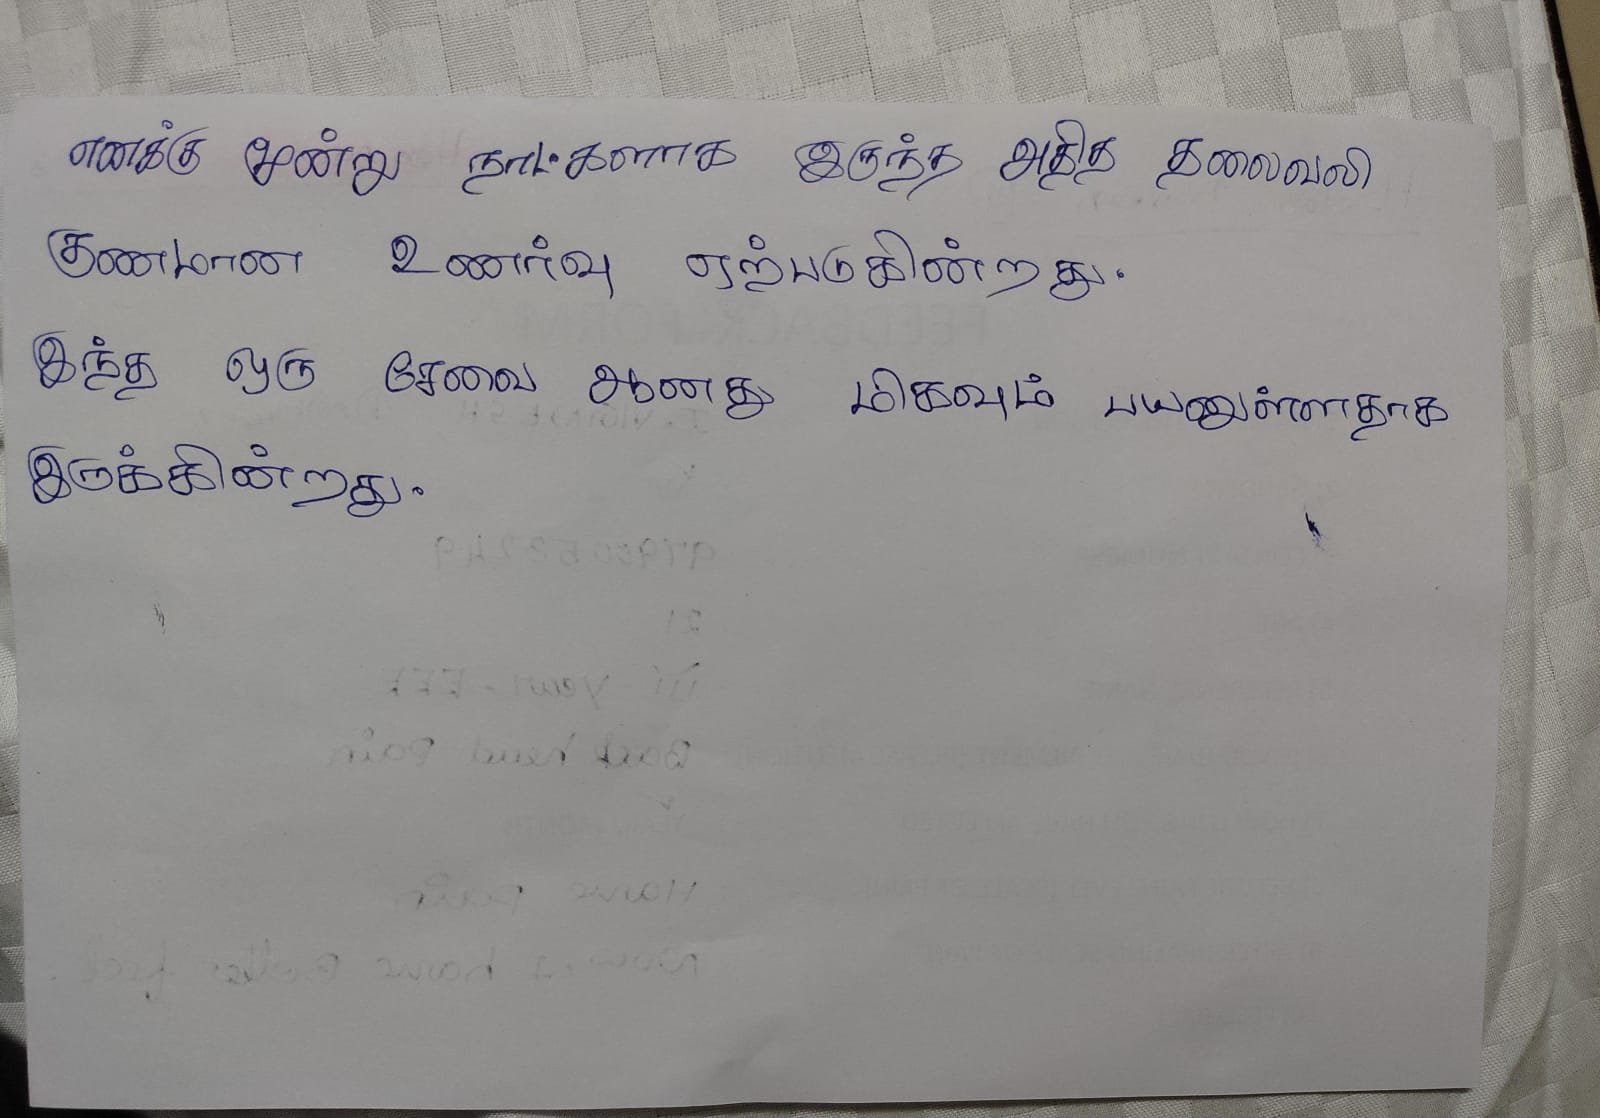 எனக்கு மூன்று நாட்களாக இருந்த அதித தலைவலி
குணமான உணர்வு ஏற்படுகின்றது.
இந்த ஒரு சேவை ஆனது மிகவும் பயனுள்ளதாக
இருக்கின்றது.